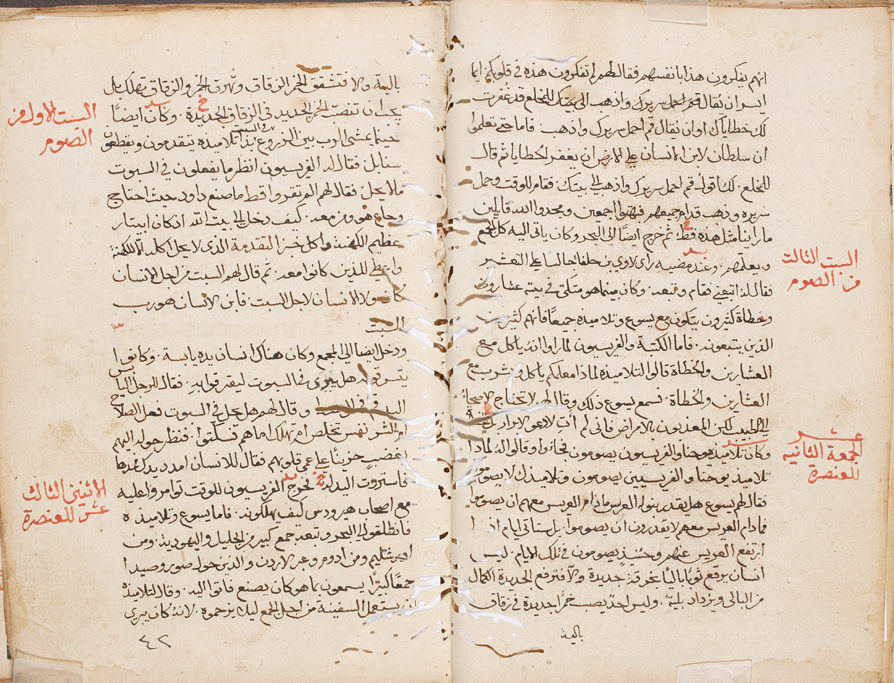 انهم يفكرون هذا بانفسهم فقال لهم لم تفكرون هذه في قلوبكم ايما
ايسر ان يقال قم احمل سريرك واذهب الى بيتك للمخلع قد غفرت
لك خطاياك او ان يقال قم احمل سريرك واذهب. فاما حتى تعلموا
ان سلطان لابن الانسان على الارض ان يغفر الخطايا ثم قال
للمخلع. لك اقول قم احمل سريرك واذهب الى بيتك. فقام للوقت وحمل
سريره وذهب قدام جميعهم فبهتوا اجمعين ومجدوا الله قايلين
ما راينا مثل هذه قط. ثم خرج ايضا الى البحر وكان ياتي اليه كل الجمع
ويعلمهم. وعند مضيه راى لاوي بن حلفا جالسا على التعشير
فقال له اتبعني فقام وتبعه. وكان بينما هو متكي في بيته عشارون
وخطاة كثيرون يتكون مع يسوع وتلاميذه جميعا فانهم كثيرين
الذين يتبعونه. فاما الكتبة والفريسيون لما راوا انه ياكل مع
العشارين والخطاة قالوا لتلاميذه لماذا معلمكم ياكل ويشرب مع
العشارين والخطاة. فسمع يسوع ذلك وقال لهم لا تحتاج الاصحاء
الى طبيب لكن المعذبون بالامراض فاني لم آت لادعو الابرار لكن
وكان تلاميذ يوحنا والفريسيون يصومون فجاءوا وقالوا له لماذا
تلاميذ يوحنا والفريسيين يصومون وتلاميذك لا يصومون
فقال لهم يسوع هل يقدر بنوا العرس ما دام العريس معهم ان يصوموا
فما دام العريس معهم لا يقدرون ان يصوموا. بل ستاتي ايام اذا
ارتفع العريس عنهم وحينئذ يصومون في تلك الايام. ليس
انسان يرقع ثوبا باليا بخرقة جديدة والا فترفع الجديدة الكمال
من البالي ويزداد بلية. وليس احد يصب خمرا جديدة في زقاق
بالية
السبت الثالث
من الصوم
عشر
الجمعة الثانيه
للعنصرة
بالية والا فتشقق الخمر الزقاق وتهرق الخمر والزقاق تهلك بل
يجب ان تصب الخمر الجديد في الزقاق الجديدة. وكان ايضا
حينما يمشي الرب بين الزروع بدا تلاميذه يتقدمون ويقطفون
سنابل. فقال له الفريسيون انظر ما يفعلون في السبوت
ما لا يحل. فقال لهم الم تقروا قط ما صنع داود حيث احتاج
وجاع هو ومن معه. كيف دخل الى بيت الله اذ كان ابيتار
عظيم الكهنة واكل خبز التقدمة الذي لا يحل اكله الا للكهنة
واعطى للذين كانوا معه. ثم قال لهم السبت من اجل الانسان
كان ولا الانسان لاجل السبت. فابن الانسان هو رب
السبت
ودخل ايضا الى المجمع وكان هناك انسان يده يابسة. وكانوا
يترقبونه هل يبري في السبوت ليقرفوا به. فقال للرجل اليابس
اليد قم في الوسط وقال لهم هل يحل في السبوت فعل الصلاح
ام الشر نفس تخلص ام تهلك اما هم فسكتوا. فنظر حوله اليهم
بغضب حزينا على عمي قلوبهم فقال للانسان امدد يدك فمدها
فاستوت اليد. فخرج الفريسيون للوقت توامروا عليه
مع اصحاب هيرودس كيف يهلكونه. فاما يسوع وتلاميذه
فانطلقوا الى البحر وتبعه جمع كبير من الجليل واليهودية. ومن
اورشليم ومن ادوم وعبر الاردن والذين حول صور وصيدا
جمعا كبيرا يسمعون بما هو كان يصنع فاتوا اليه. وقال لتلاميذه
ان يستعمل السفينة من اجل الجمع ليلا يزحموه. لانه كان يبري
٤٢
السبت الاول من
الصوم
الاثنين الثالث
عشر للعنصرة